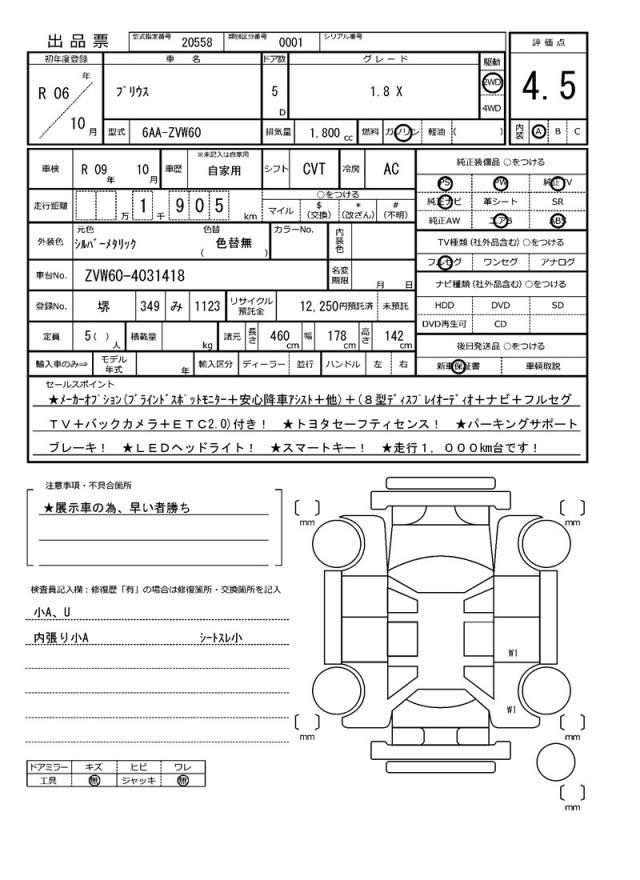 出品票
型式指定番号 20558 類別区分番号 0001 シリアル番号
初年度登録 車名 ドア数 グレード 駆動 評価点
R 06 年 10 月 プリウス 5 D 1.8 X 2WD 4WD 4.5
型式 6AA-ZVW60 排気量 1,800 cc 燃料 ガソリン 軽油 ( ) 内装 A B C
車検 R 09 年 10 月 車歴 ※未記入は自家用 自家用 シフト CVT 冷房 AC
純正装備品 ○をつける
PS PW 純正TV
純正ナビ 革シート SR
純正AW エアB ABS
走行距離 万 1 千 9 0 5 km
○をつける
マイル $(交換) *(改ざん) #(不明)
外装色 元色 シルバーメタリック 色替 ( 色替無 ) カラーNo. 内装色
TV種類 (社外品含む) ○をつける
フルセグ ワンセグ アナログ
車台No. ZVW60-4031418 名変期限 月 日
ナビ種類 (社外品含む) ○をつける
HDD DVD SD
DVD再生可 CD
登録No. 堺 349 み 1123 リサイクル預託金 12,250円預託済 未預託
定員 5( ) 人 積載量 kg 諸元 長さ 460 cm 幅 178 cm 高さ 142 cm
後日発送品 ○をつける
新車保証書 車輌取説
輸入車のみ⇒ モデル年式 年 輸入区分 ディーラー 並行 ハンドル 左 右
セールスポイント
★メーカーオプション(ブラインドスポットモニター+安心降車アシスト+他)+(8型ディスプレイオーディオ+ナビ+フルセグ
TV+バックカメラ+ETC2.0)付き! ★トヨタセーフティセンス! ★パーキングサポート
ブレーキ! ★LEDヘッドライト! ★スマートキー! ★走行1,000km台です!
注意事項・不具合箇所
★展示車の為、早い者勝ち
検査員記入欄:修復歴「有」の場合は修復箇所・交換箇所を記入
小A、U
内張り小A シートスレ小
ドアミラー キズ ヒビ ワレ
工具 無 ジャッキ 無
[ ] mm
[ ] mm
W1
W1
[ ] mm
[ ] mm
[ ] mm